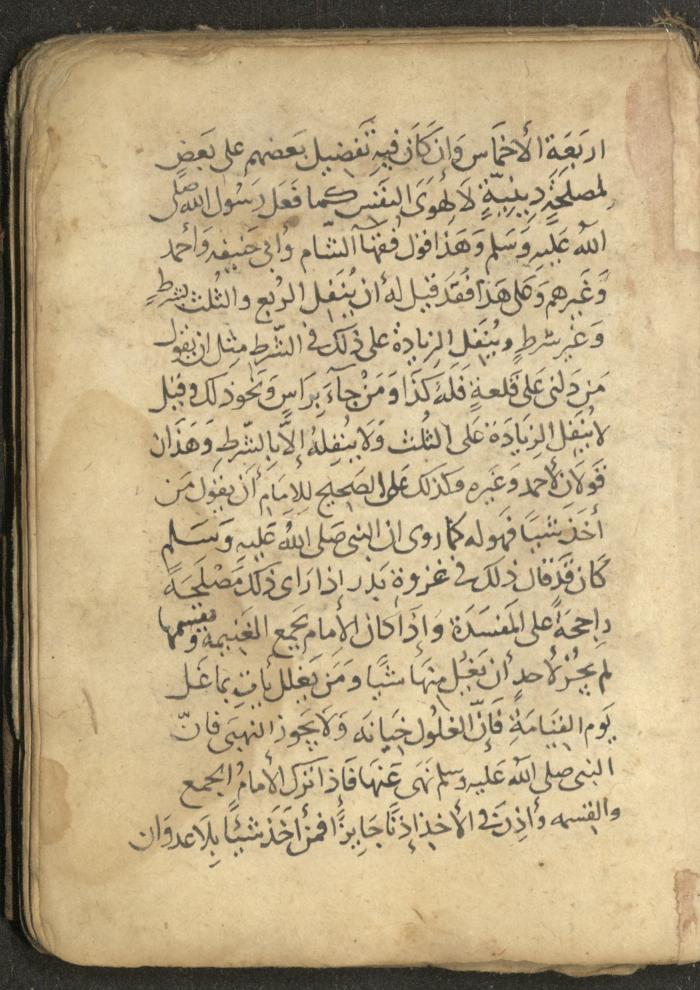 اربعة الأخماس وَان كَان فيهِ تَفضيل بَعضهم على بَعضٍ
لمصلحَةٍ دِينيّةٍ لَا لِهوَى النفس كما فعَل رَسُول الله صلى
الله عَليهِ وَسَلم وَهَذا قول فُقهآ الشام وأبى حَنيفه وَأحمد
وَغَيرهم وَعلى هَذا فقَد قيل له أن يُنَفل الرُبع والثُلث بشرطٍ
وَغَير شرطٍ ويُنَفل الزيادة على ذلك فى الشَرطِ مِثل ان يقول
مَن دَلنى عَلى قلعةٍ فَلَهُ كَذا وَمَن جآءَ براسٍ وَنحو ذلك وقيل
لا يُنَفل الزيَادَة عَلى الثلث وَلا ينفِلهُ إلاَّ بالشرطِ وَهَذان
قولان لأحمد وَغَيره وكذلك عَلى الصَحيح للإمَامِ أن يقول مَن
أخَذ شيئا فهو له كما روى ان النبى صَلى اللهُ عَليهِ وَسَلم
كان قَد قال ذلك فى غزوة بَدر إذا رَاى ذلك مَصْلحَةً
راجحَةً على المَفسَدَة وَإذا كان الإمام يجمع الغَنِيمَه ويقسمها
لم يَجُز لأحدٍ أن يَغُل مِنهَا شيئًا وَمَن يَغلل يَأتِ بما غَل
يَوم القيَامَةِ فَإنّ الغلُول خيانه وَلَا يَجوز النهبَى فانّ
النبى صلى الله عَليهِ وسلم نَهى عَنهَا فَاذا تَرك الأمامُ الجمع
والقسمه وأذِن فى الأخذِ إذنًا جَايزًا فمَن أخَذ شيئًا بلَا عدوَان